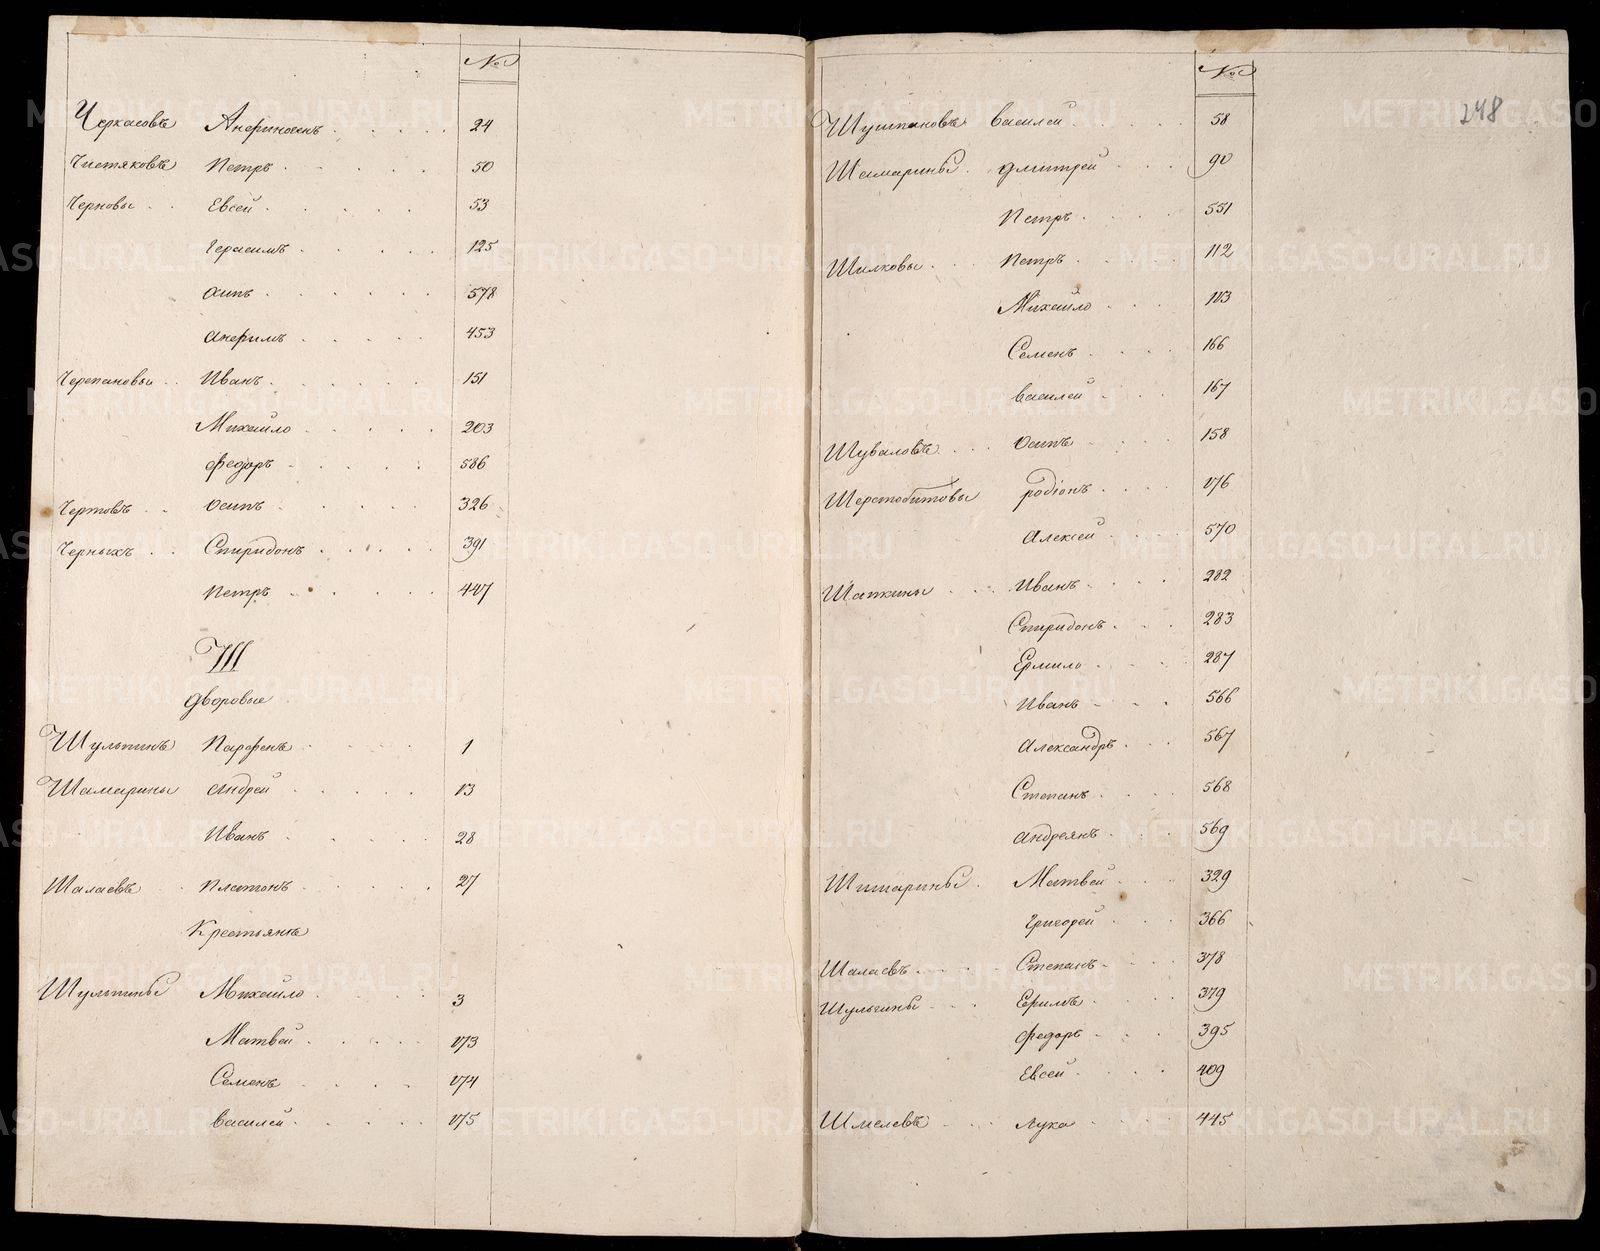 №
Черкасовъ Анфиногенъ 24
Чистяковъ Петръ 50
Черновы Евсей 53
Герасимъ 125
Осипъ 578
Анфимъ 453
Черепановы Иванъ 151
Михайло 203
Федоръ 586
Чертовъ Осипъ 326
Черныхъ Спиридонъ 391
Петръ 447
Ш
Дворовые
Шульпинъ Парфенъ 1
Шамарины Андрей 13
Иванъ 28
Шалаевъ Платонъ 27
Крестьяне
Шульпины Михайло 3
Матвей 173
Семенъ 174
Василей 175
№
248
Шушпановъ Василей 58
Шамарины Дмитрей 90
Петръ 551
Шилковы Петръ 112
Михайло 113
Семенъ 166
Василей 167
Шуваловъ Осипъ 158
Шерстобитовы Родіонъ 176
Алексей 570
Шапкины Иванъ 282
Спиридонъ 283
Ермило 287
Иванъ 566
Александръ 567
Степанъ 568
Андреянъ 569
Шишарины Матвей 329
Григорей 366
Шалаевъ Степанъ 378
Шульгины Ефимъ 379
Федоръ 395
Евсей 409
Шмелевъ Лука 445
METRIKI.GASO-URAL.RU